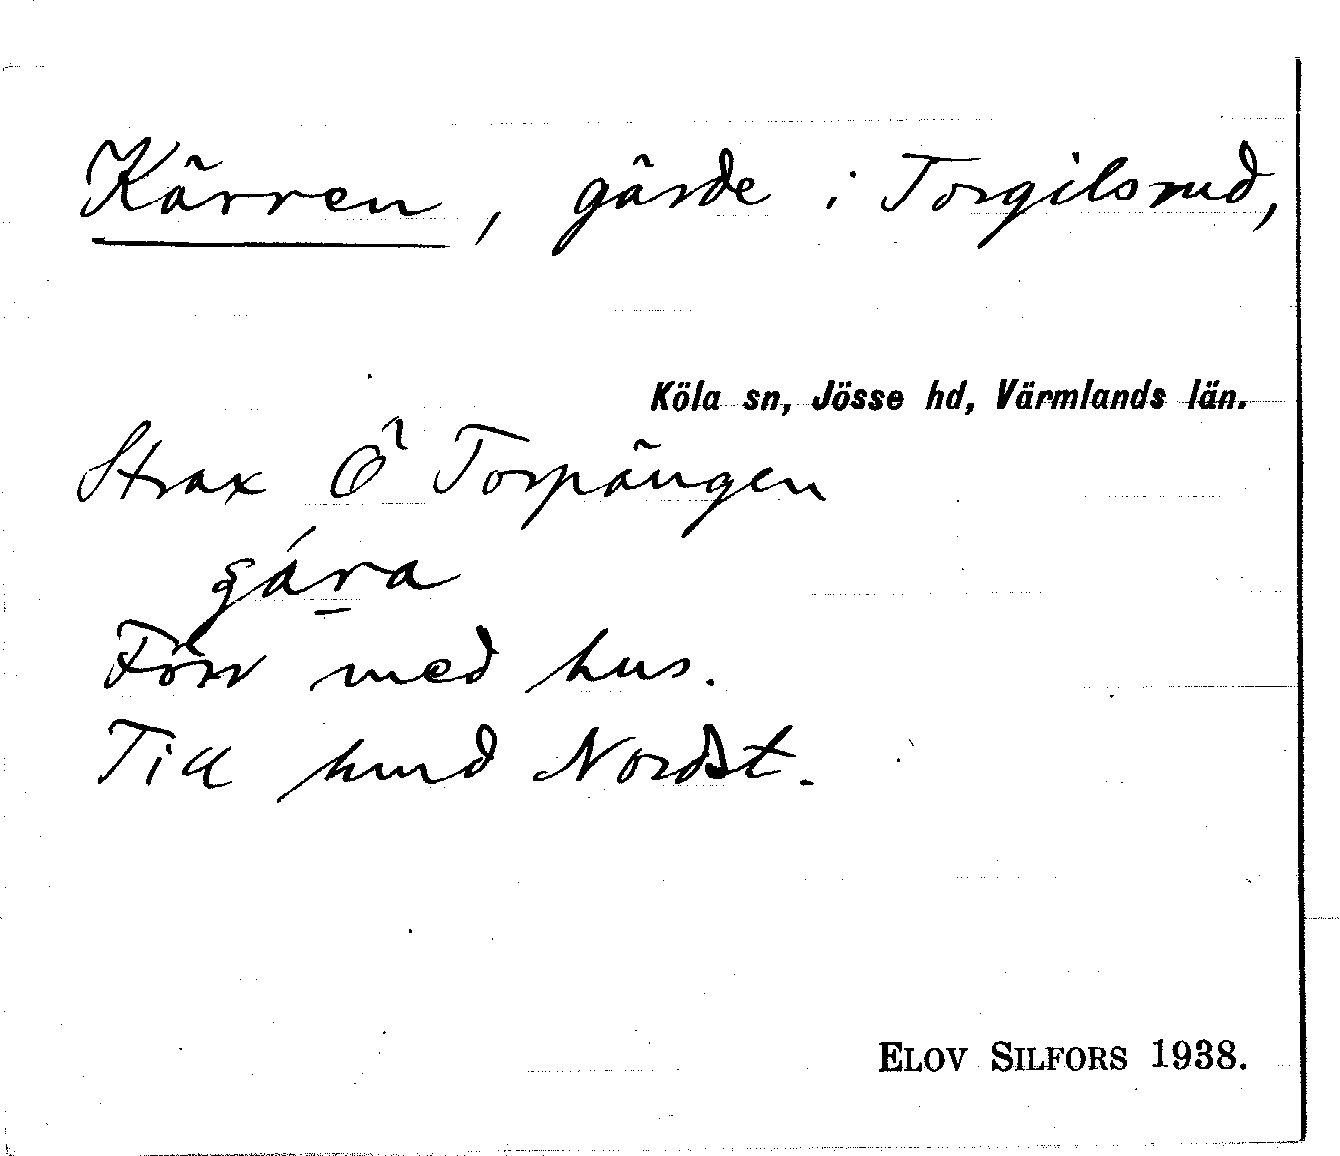 Kärren, gärde i Torgilsrud,
Köla sn, Jösse hd, Värmlands län.
Strax Ö Torpängen
Förr med hus.
Till hmd Nordst.
ELOV SILFORS 1938.